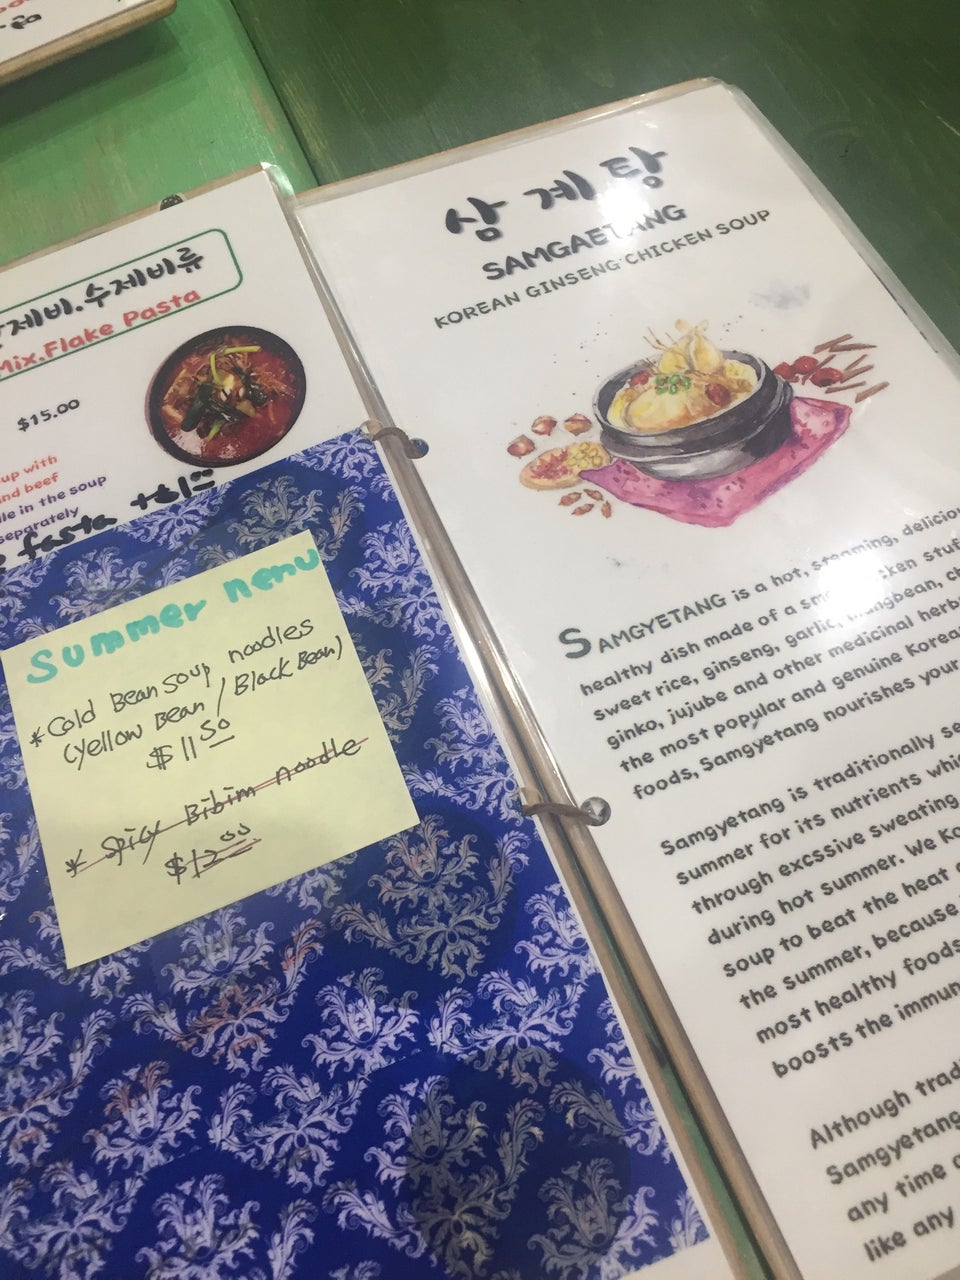 제비.수제비류
Mix.Flake Pasta
$15.00
up with
nd beef
dle in the soup
separately
Summer nenu
*Cold Bean soup noodles
(Yellow Bean / Black Bean)
$11.50
* Spicy Bibim noodle
$12.00
삼계탕
SAMGAETANG
KOREAN GINSENG CHICKEN SOUP
SAMGYETANG is a hot, steaming, delicio
healthy dish made of a sm chicken stuf
sweet rice, ginseng, garlic, mungbean, ch
ginko, jujube and other medicinal herb
the most popular and genuine Korea
foods, Samgyetang nourishes your
Samgyetang is traditionally se
summer for its nutrients whi
through excssive sweating
during hot summer. We Ko
soup to beat the heat
the summer, because
most healthy foods
boosts the immun
Although trad
Samgyetang
any time o
like any